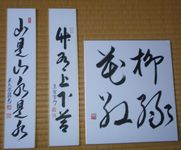 柳緑
花紅
竹有上下節
山是山水是水